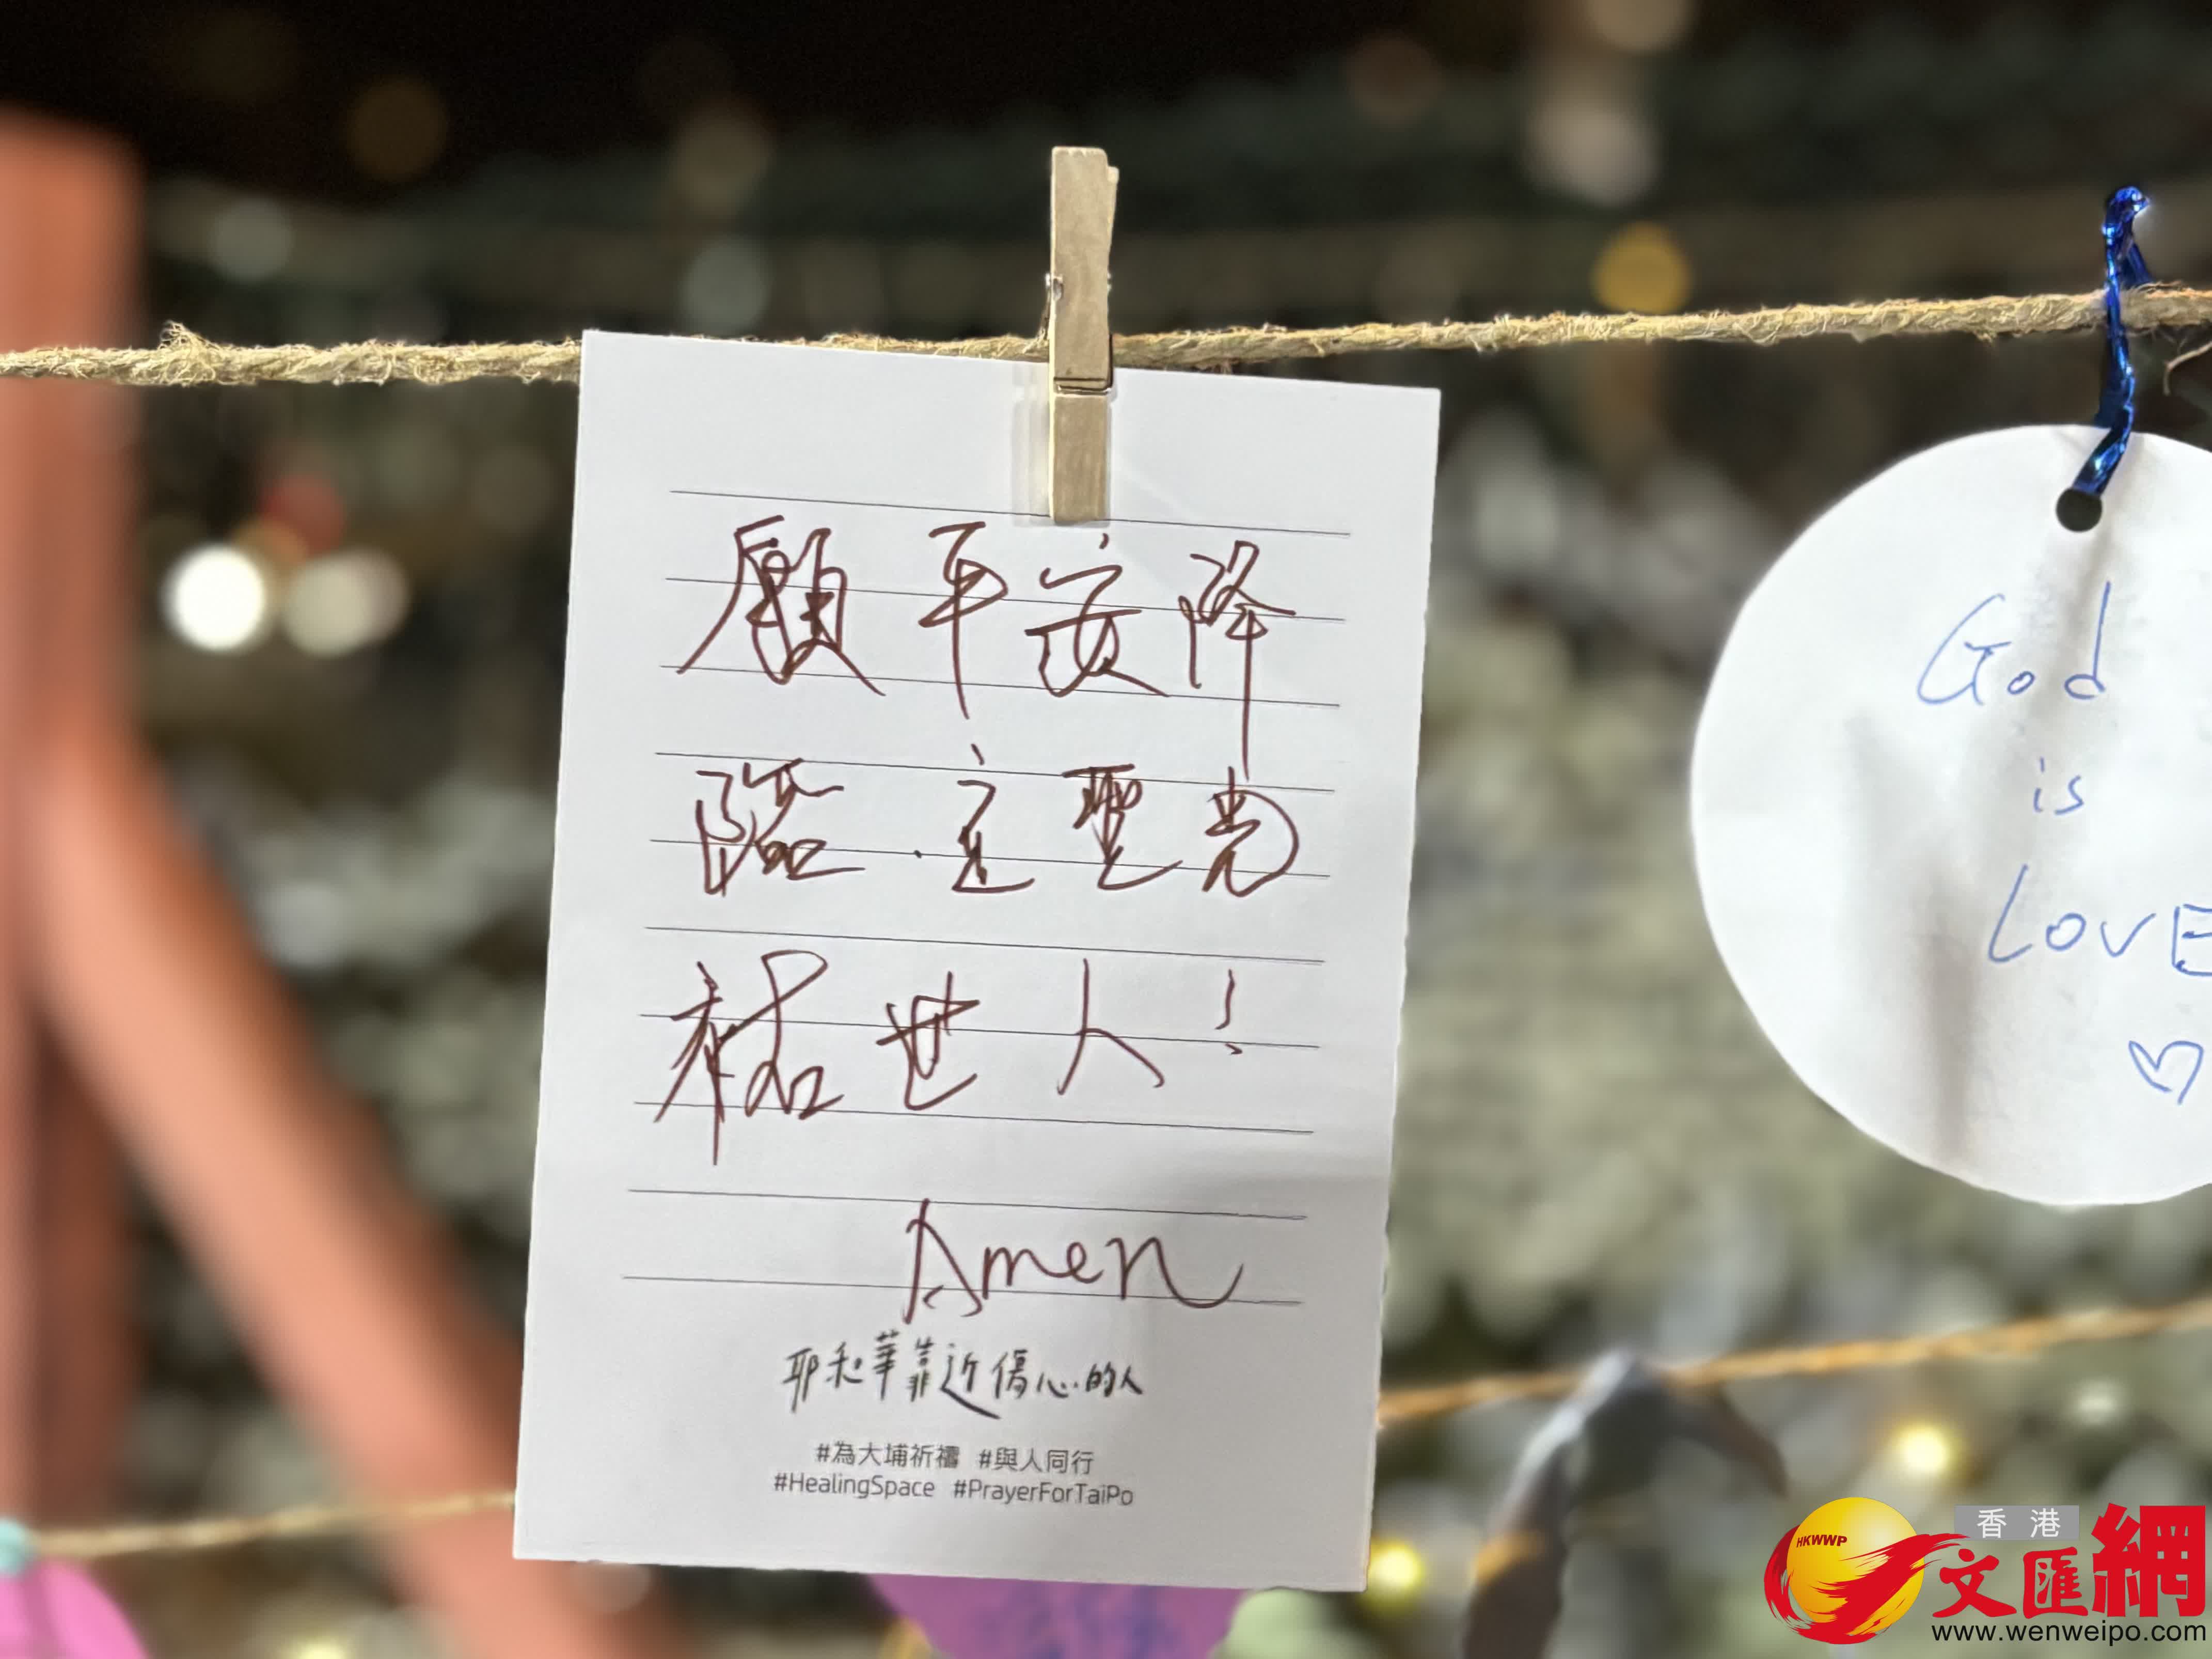 願平安降
臨.主聖光
祐世人!
Amen
耶和華靠近傷心的人
#為大埔祈禱 #與人同行
#HealingSpace #PrayerForTaiPo
God
is
LOVE
HKWWP
香港
文匯網
www.wenweipo.com